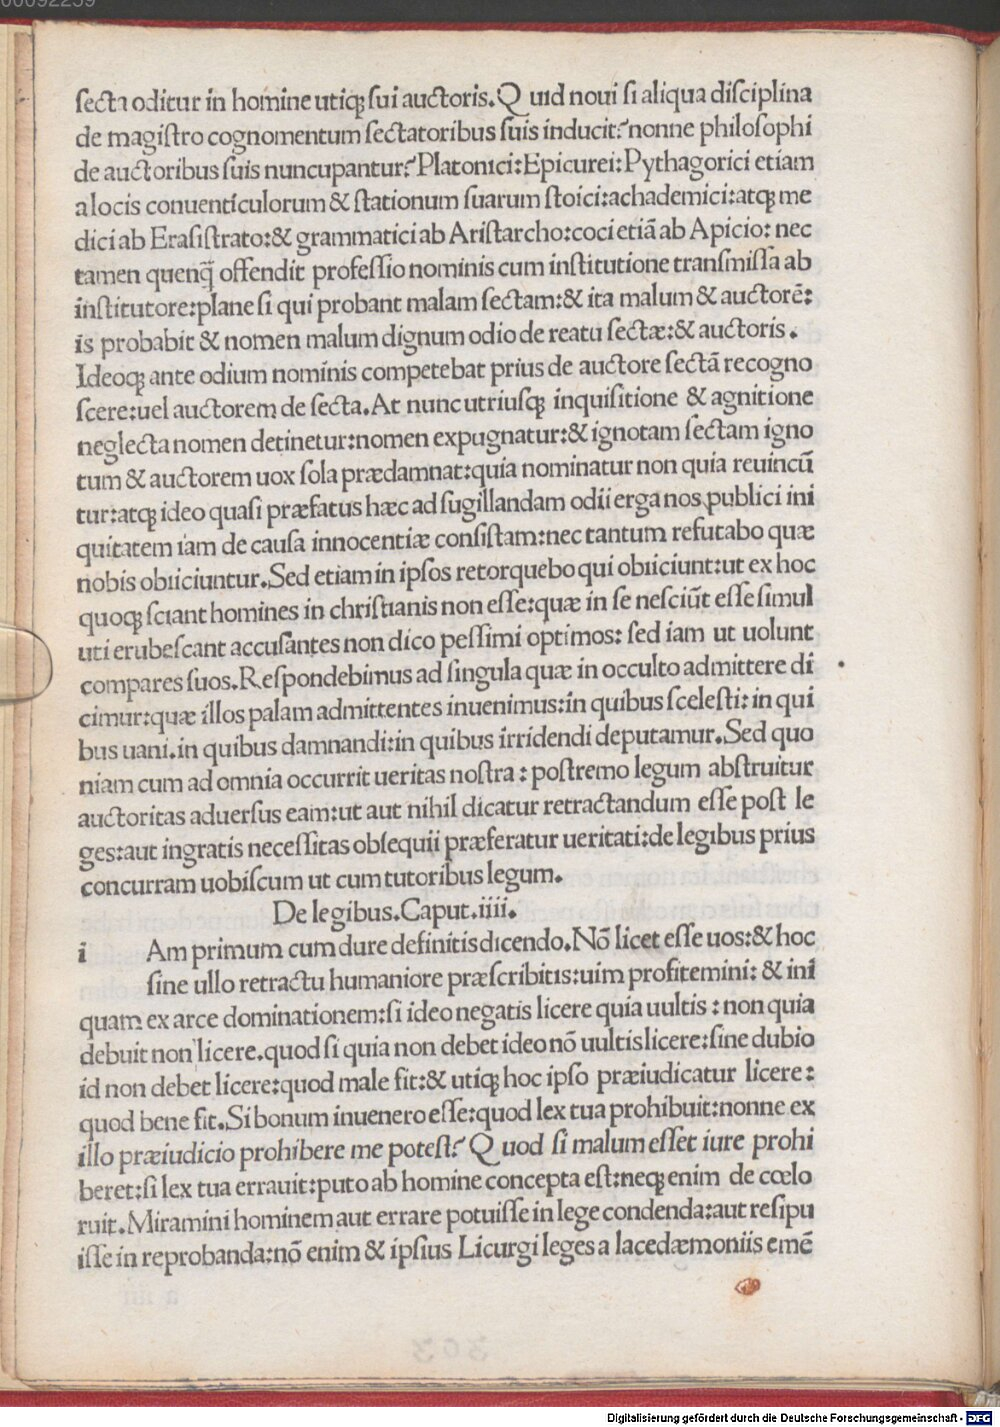 00092239
secta oditur in homine utiqꝫ sui auctoris.Q uid noui si aliqua disciplina
de magistro cognomentum sectatoribus suis inducit?nonne philosophi
de auctoribus suis nuncupantur?Platonici:Epicurei:Pythagorici etiam
a locis conuenticulorum & stationum suarum stoici:achademici:atqꝫ me
dici ab Erasistrato:& grammatici ab Aristarcho:coci etiã ab Apicio: nec
tamen quenq̃ offendit professio nominis cum institutione transmissa ab
institutore:plane si qui probant malam sectam:& ita malum & auctorē:
is probabit & nomen malum dignum odio de reatu sectæ:& auctoris.
Ideoqꝫ ante odium nominis competebat prius de auctore sectã recogno
scere:uel auctorem de secta.At nunc utriusqꝫ inquisitione & agnitione
neglecta nomen detinetur:nomen expugnatur:& ignotam sectam igno
tum & auctorem uox sola prædamnat:quia nominatur non quia reuincũ
tur:atqꝫ ideo quasi præfatus hæc ad sugillandam odii erga nos publici ini
quitatem iam de causa innocentiæ consistam:nec tantum refutabo quæ
nobis obiiciuntur.Sed etiam in ipsos retorquebo qui obiiciunt:ut ex hoc
quoqꝫ sciant homines in christianis non esse:quæ in se nesciũt esse simul
uti erubescant accusantes non dico pessimi optimos: sed iam ut uolunt
compares suos.Respondebimus ad singula quæ in occulto admittere di
cimur:quæ illos palam admittentes inuenimus:in quibus scelesti: in qui
bus uani.in quibus damnandi:in quibus irridendi deputamur.Sed quo
niam cum ad omnia occurrit ueritas nostra : postremo legum abstruitur
auctoritas aduersus eam:ut aut nihil dicatur retractandum esse post le
ges:aut ingratis necessitas obsequii præferatur ueritati:de legibus prius
concurram uobiscum ut cum tutoribus legum.
De legibus.Caput.iiii.
i Am primum cum dure definitis dicendo.Nõ licet esse uos:& hoc
sine ullo retractu humaniore præscribitis:uim profitemini: & ini
quam ex arce dominationem:si ideo negatis licere quia uultis : non quia
debuit non licere.quod si quia non debet ideo nõ uultis licere:sine dubio
id non debet licere:quod male fit:& utiqꝫ hoc ipso præiudicatur licere:
quod bene fit.Si bonum inuenero esse:quod lex tua prohibuit:nonne ex
illo præiudicio prohibere me potest? Q uod si malum esset iure prohi
beret:si lex tua errauit:puto ab homine concepta est:neqꝫ enim de cœlo
ruit.Miramini hominem aut errare potuisse in lege condenda:aut resipu
isse in reprobanda:nõ enim & ipsius Licurgi leges a lacedæmoniis emē
Digitalisierung gefördert durch die Deutsche Forschungsgemeinschaft - DFG